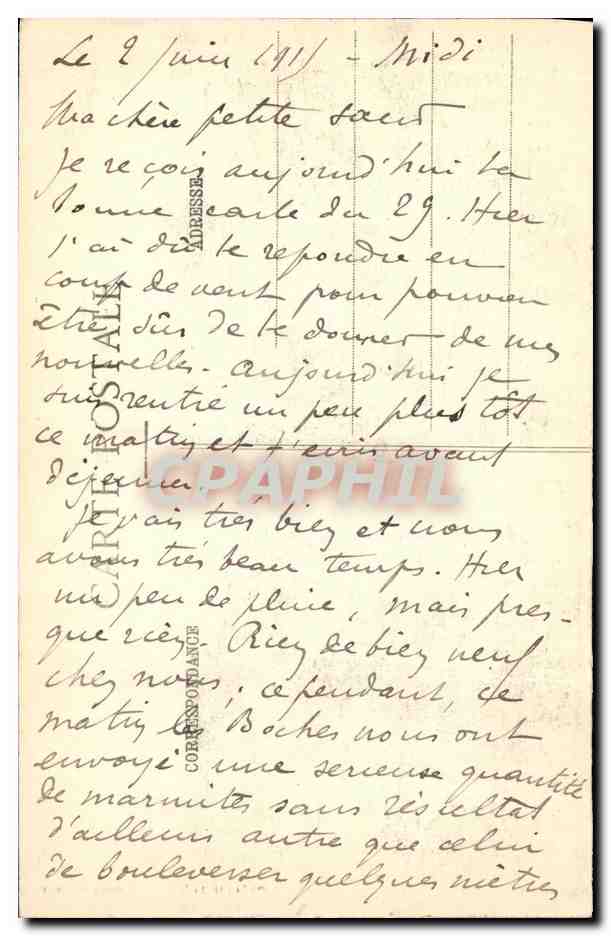 Le 2 Juin 1915 - Midi
Ma chère petite sœur
Je reçois aujourd'hui ta
bonne carte du 29. Hier
j'ai dû te repondre en
coup de vent pour pouvoir
être sûr de te donner de mes
nouvelles. Aujourd'hui je
suis rentré un peu plus tôt
ce matin et t'écris avant
déjeuner.
Je vais très bien et nous
avons très beau temps. Hier
un peu de pluie, mais pres-
que rien. Rien de bien neuf
chez nous; cependant, ce
matin les Boches nous ont
envoyé une serieuse quantité
de marmites sans résultat
d'ailleurs autre que celui
de bouleverser quelques mètres
CARTE POSTALE
ADRESSE
CORRESPONDANCE
CPAPHIL